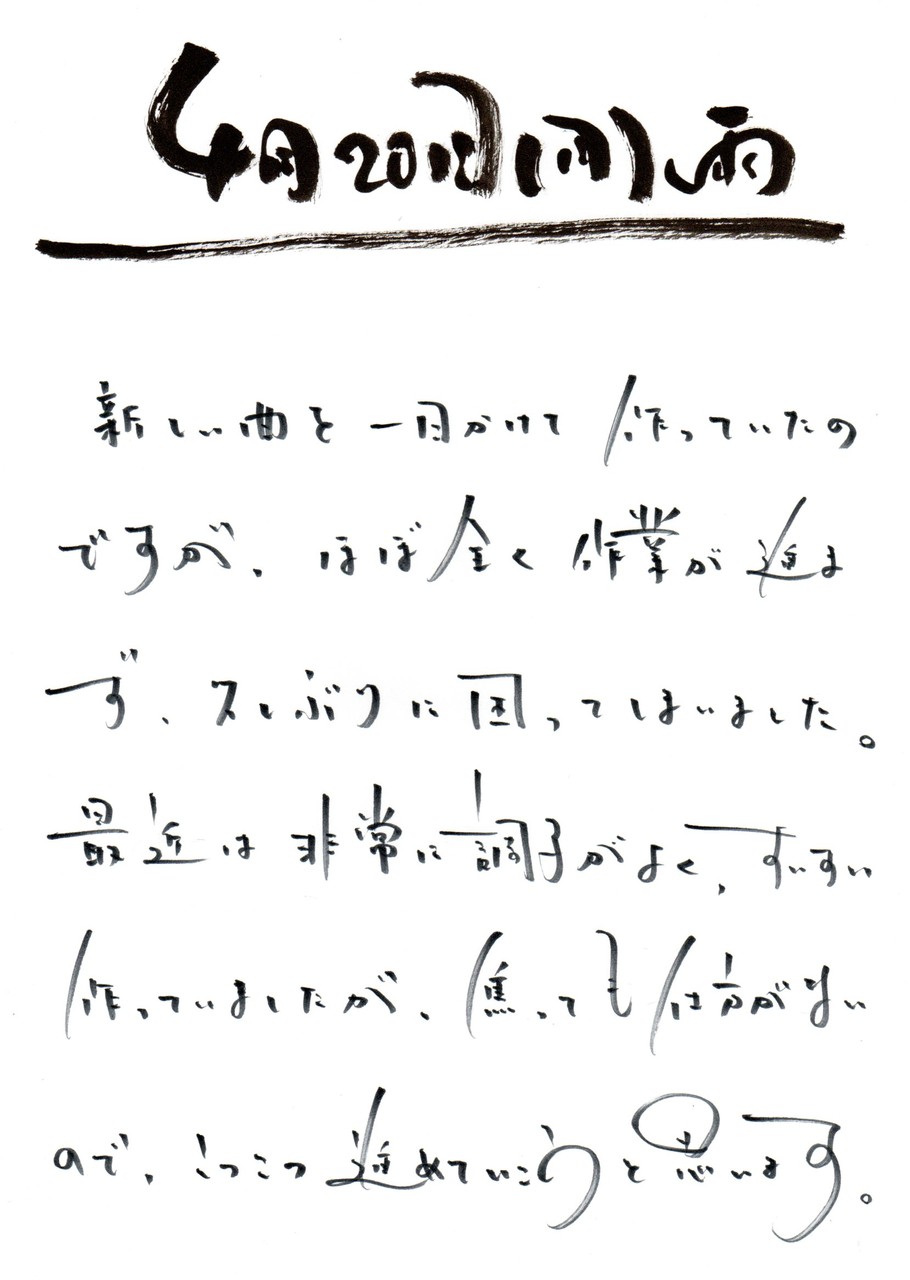 4月20日(月)雨
新しい曲を一日かけて作っていたの
ですが、ほぼ全く作業が進ま
ず、久しぶりに困ってしまいました。
最近は非常に調子がよく、すいすい
作っていましたが、焦っても仕方がない
ので、こつこつ進めていこうと思います。